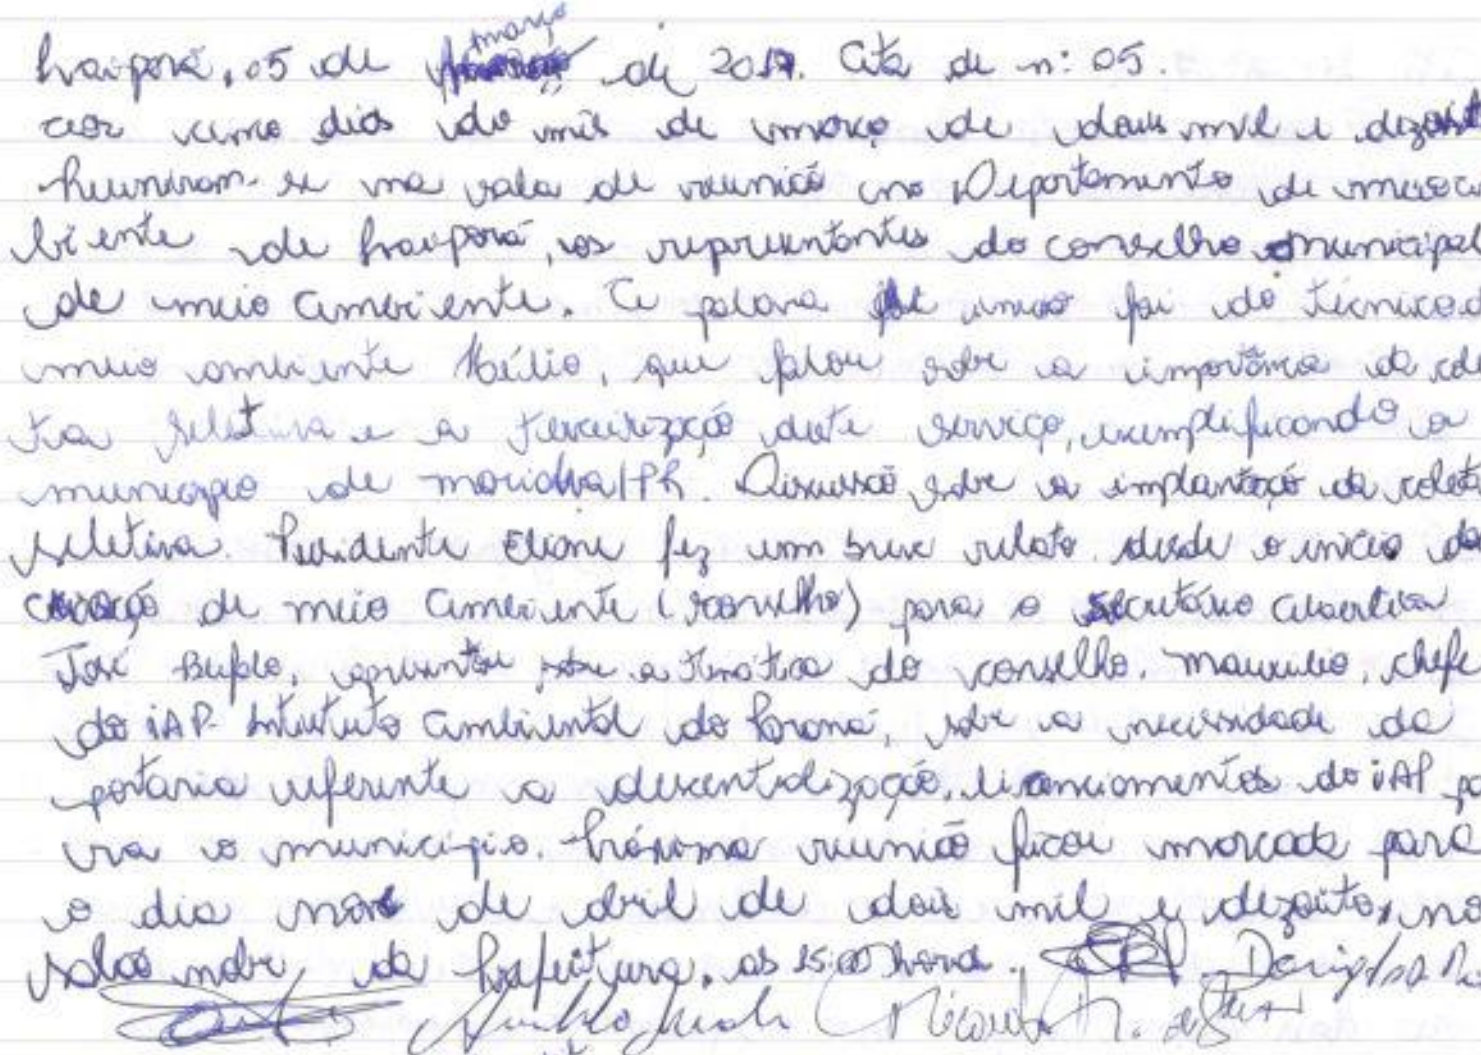 Ivaiporã, 05 de março de 2018. Ata de nº: 05.
aos cinco dias do mês de março de dois mil e dezoit
Reuniram-se na sala de reunião no Departamento de meio a
biente de Ivaiporã, os representantes do conselho municipal
de meio Ambiente. A palavra de início foi do técnico d
meio ambiente Hélio, que falou sobre a importância da cole
ta seletiva e a terceirização deste serviço, exemplificando o
município de /PR. Discussão sobre a implantação da coleta
seletiva. Presidente Eliane fez um breve relato desde o início da
criação de meio Ambiente (conselho) para o secretário
José, apresentou sobre a temática do conselho. Maurilio, chefe
do IAP- Instituto Ambiental do Paraná, sobre a necessidade da
portaria referente a descentralização, licenciamentos do IAP pa
ra o município. Próxima reunião ficou marcada para
o dia nove de abril de dois mil e dezoito, no
salão nobre da Prefeitura, as 15:00 hora.